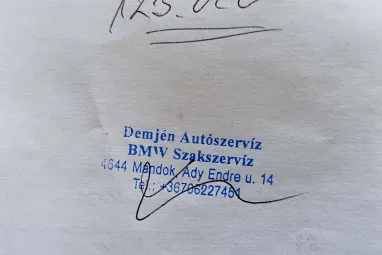 125.000
Demjén Autószervíz
BMW Szakszervíz
4644 Mándok, Ady Endre u. 14
Tel.: +36706227451